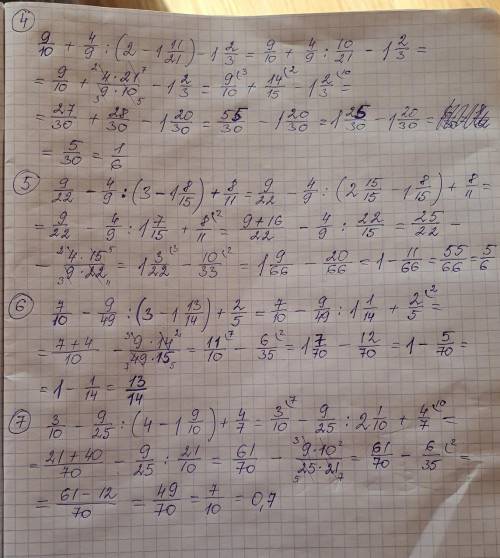 4
9/10 + 4/9 : (2 - 1 11/21) - 1 2/3 = 9/10 + 4/9 : 10/21 - 1 2/3 =
= 9/10 + 4·21/9·10 - 1 2/3 = 9/10 + 14/15 - 1 2/3 =
= 27/30 + 28/30 - 1 20/30 = 55/30 - 1 20/30 = 1 25/30 - 1 20/30 =
= 5/30 = 1/6
5
9/22 - 4/9 : (3 - 1 8/15) + 8/11 = 9/22 - 4/9 : (2 15/15 - 1 8/15) + 8/11 =
= 9/22 - 4/9 : 1 7/15 + 8/11 = 9+16/22 - 4/9 : 22/15 = 25/22 -
- 4·15/9·22 = 1 3/22 - 10/33 = 1 9/66 - 20/66 = 1 - 11/66 = 55/66 = 5/6
6
7/10 - 9/49 : (3 - 1 13/14) + 2/5 = 7/10 - 9/49 : 1 1/14 + 2/5 =
= 7+4/10 - 9·14/49·15 = 11/10 - 6/35 = 1 7/70 - 12/70 = 1 - 5/70 =
= 1 - 1/14 = 13/14
7
3/10 - 9/25 : (4 - 1 9/10) + 4/7 = 3/10 - 9/25 : 2 1/10 + 4/7 =
= 21+40/70 - 9/25 : 21/10 = 61/70 - 9·10/25·21 = 61/70 - 6/35 =
= 61-12/70 = 49/70 = 7/10 = 0,7